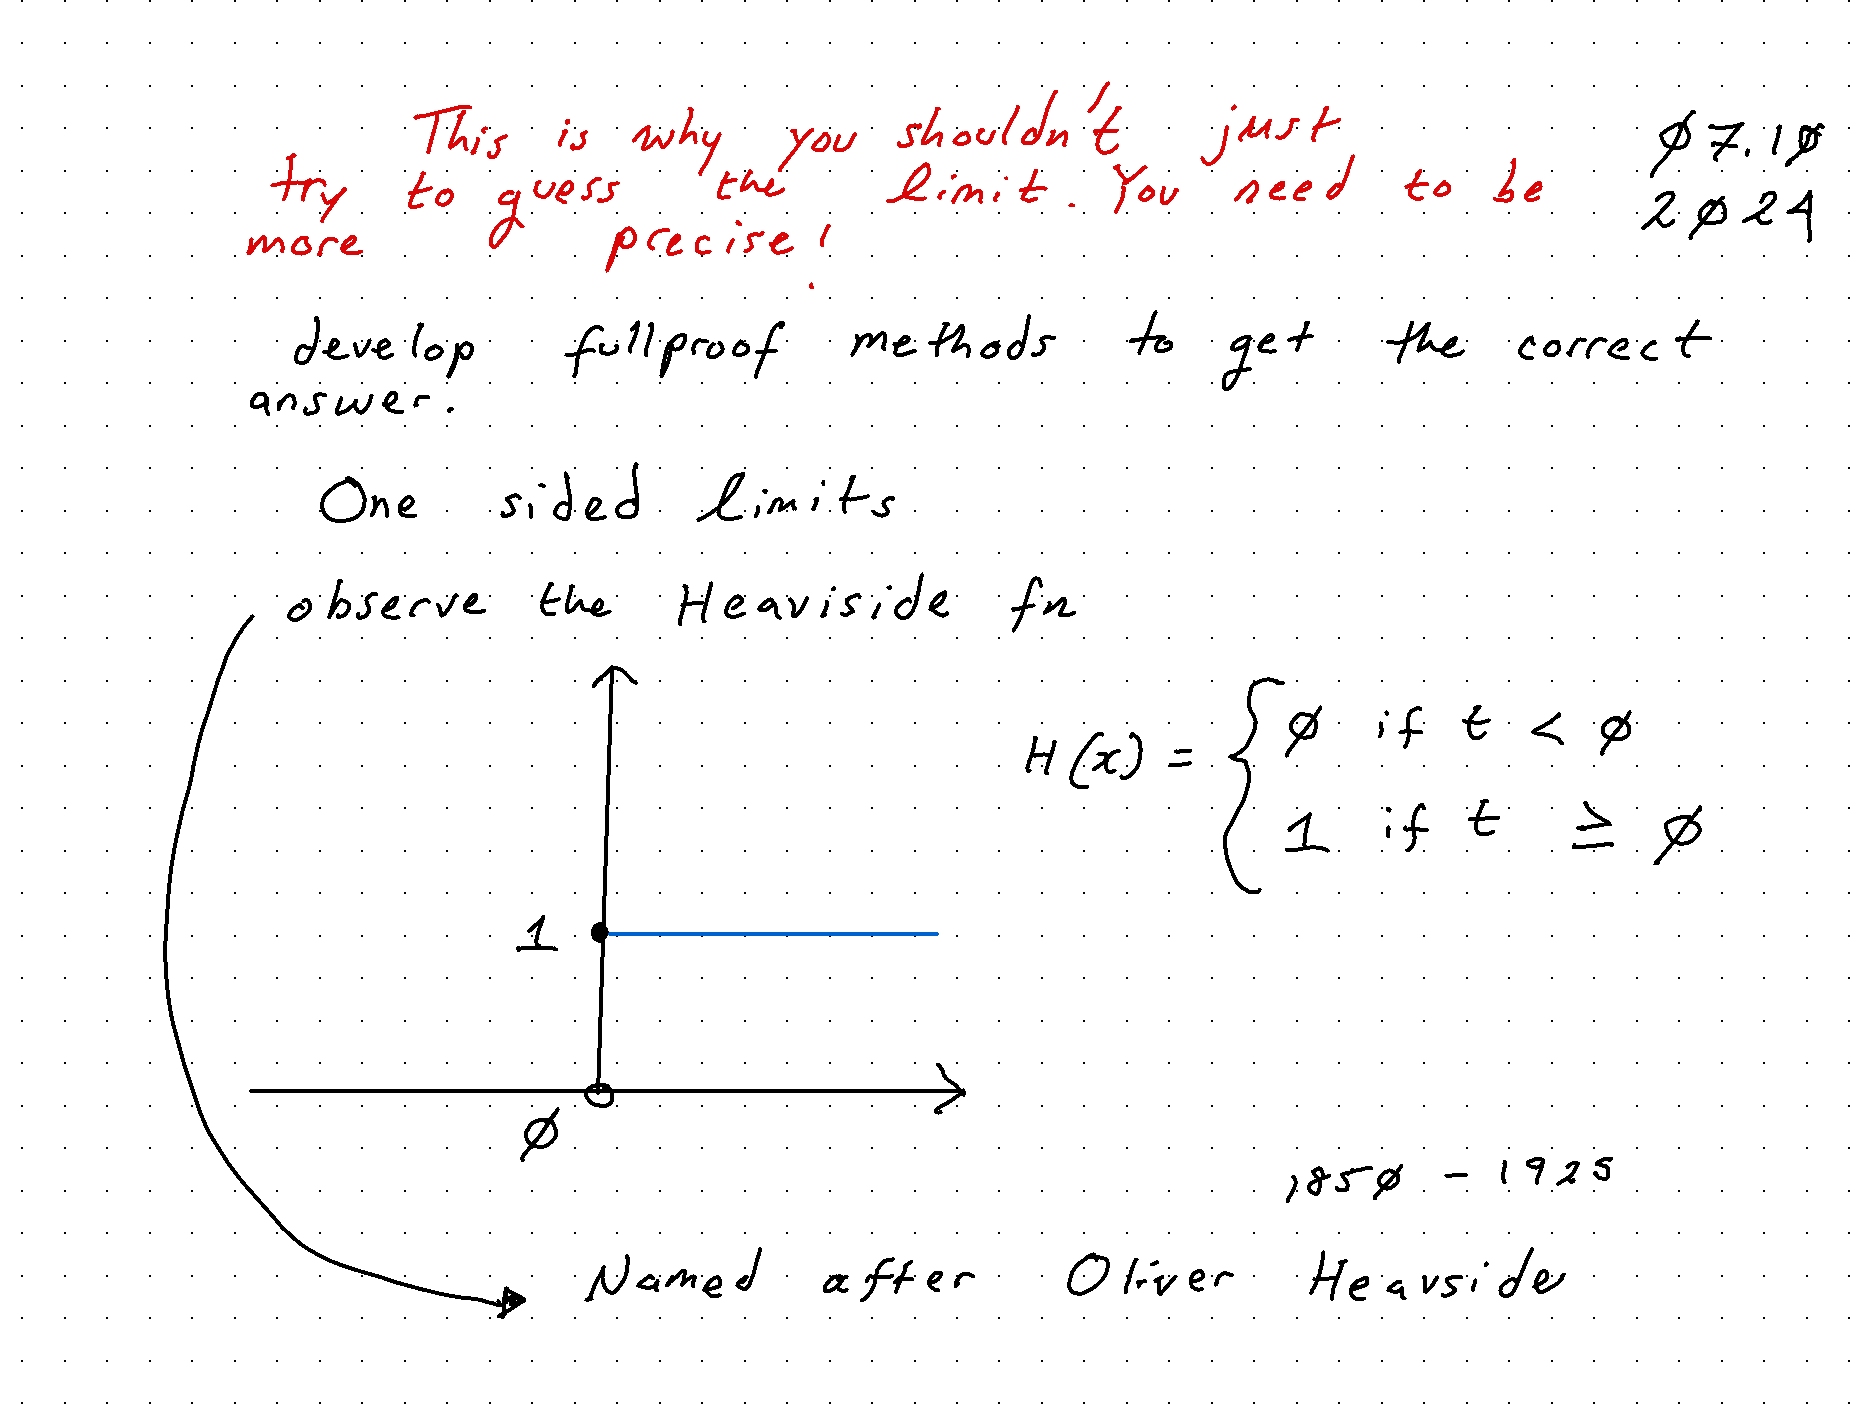 This is why you shouldn't just
try to guess the limit. You need to be
more precise!
Ø7.1Ø
2Ø24
develop fullproof methods to get the correct
answer.
One sided limits
observe the Heaviside fn
H(x) = { Ø if t < Ø
1 if t ≥ Ø
1
Ø
185Ø - 1925
Named after Oliver Heavside